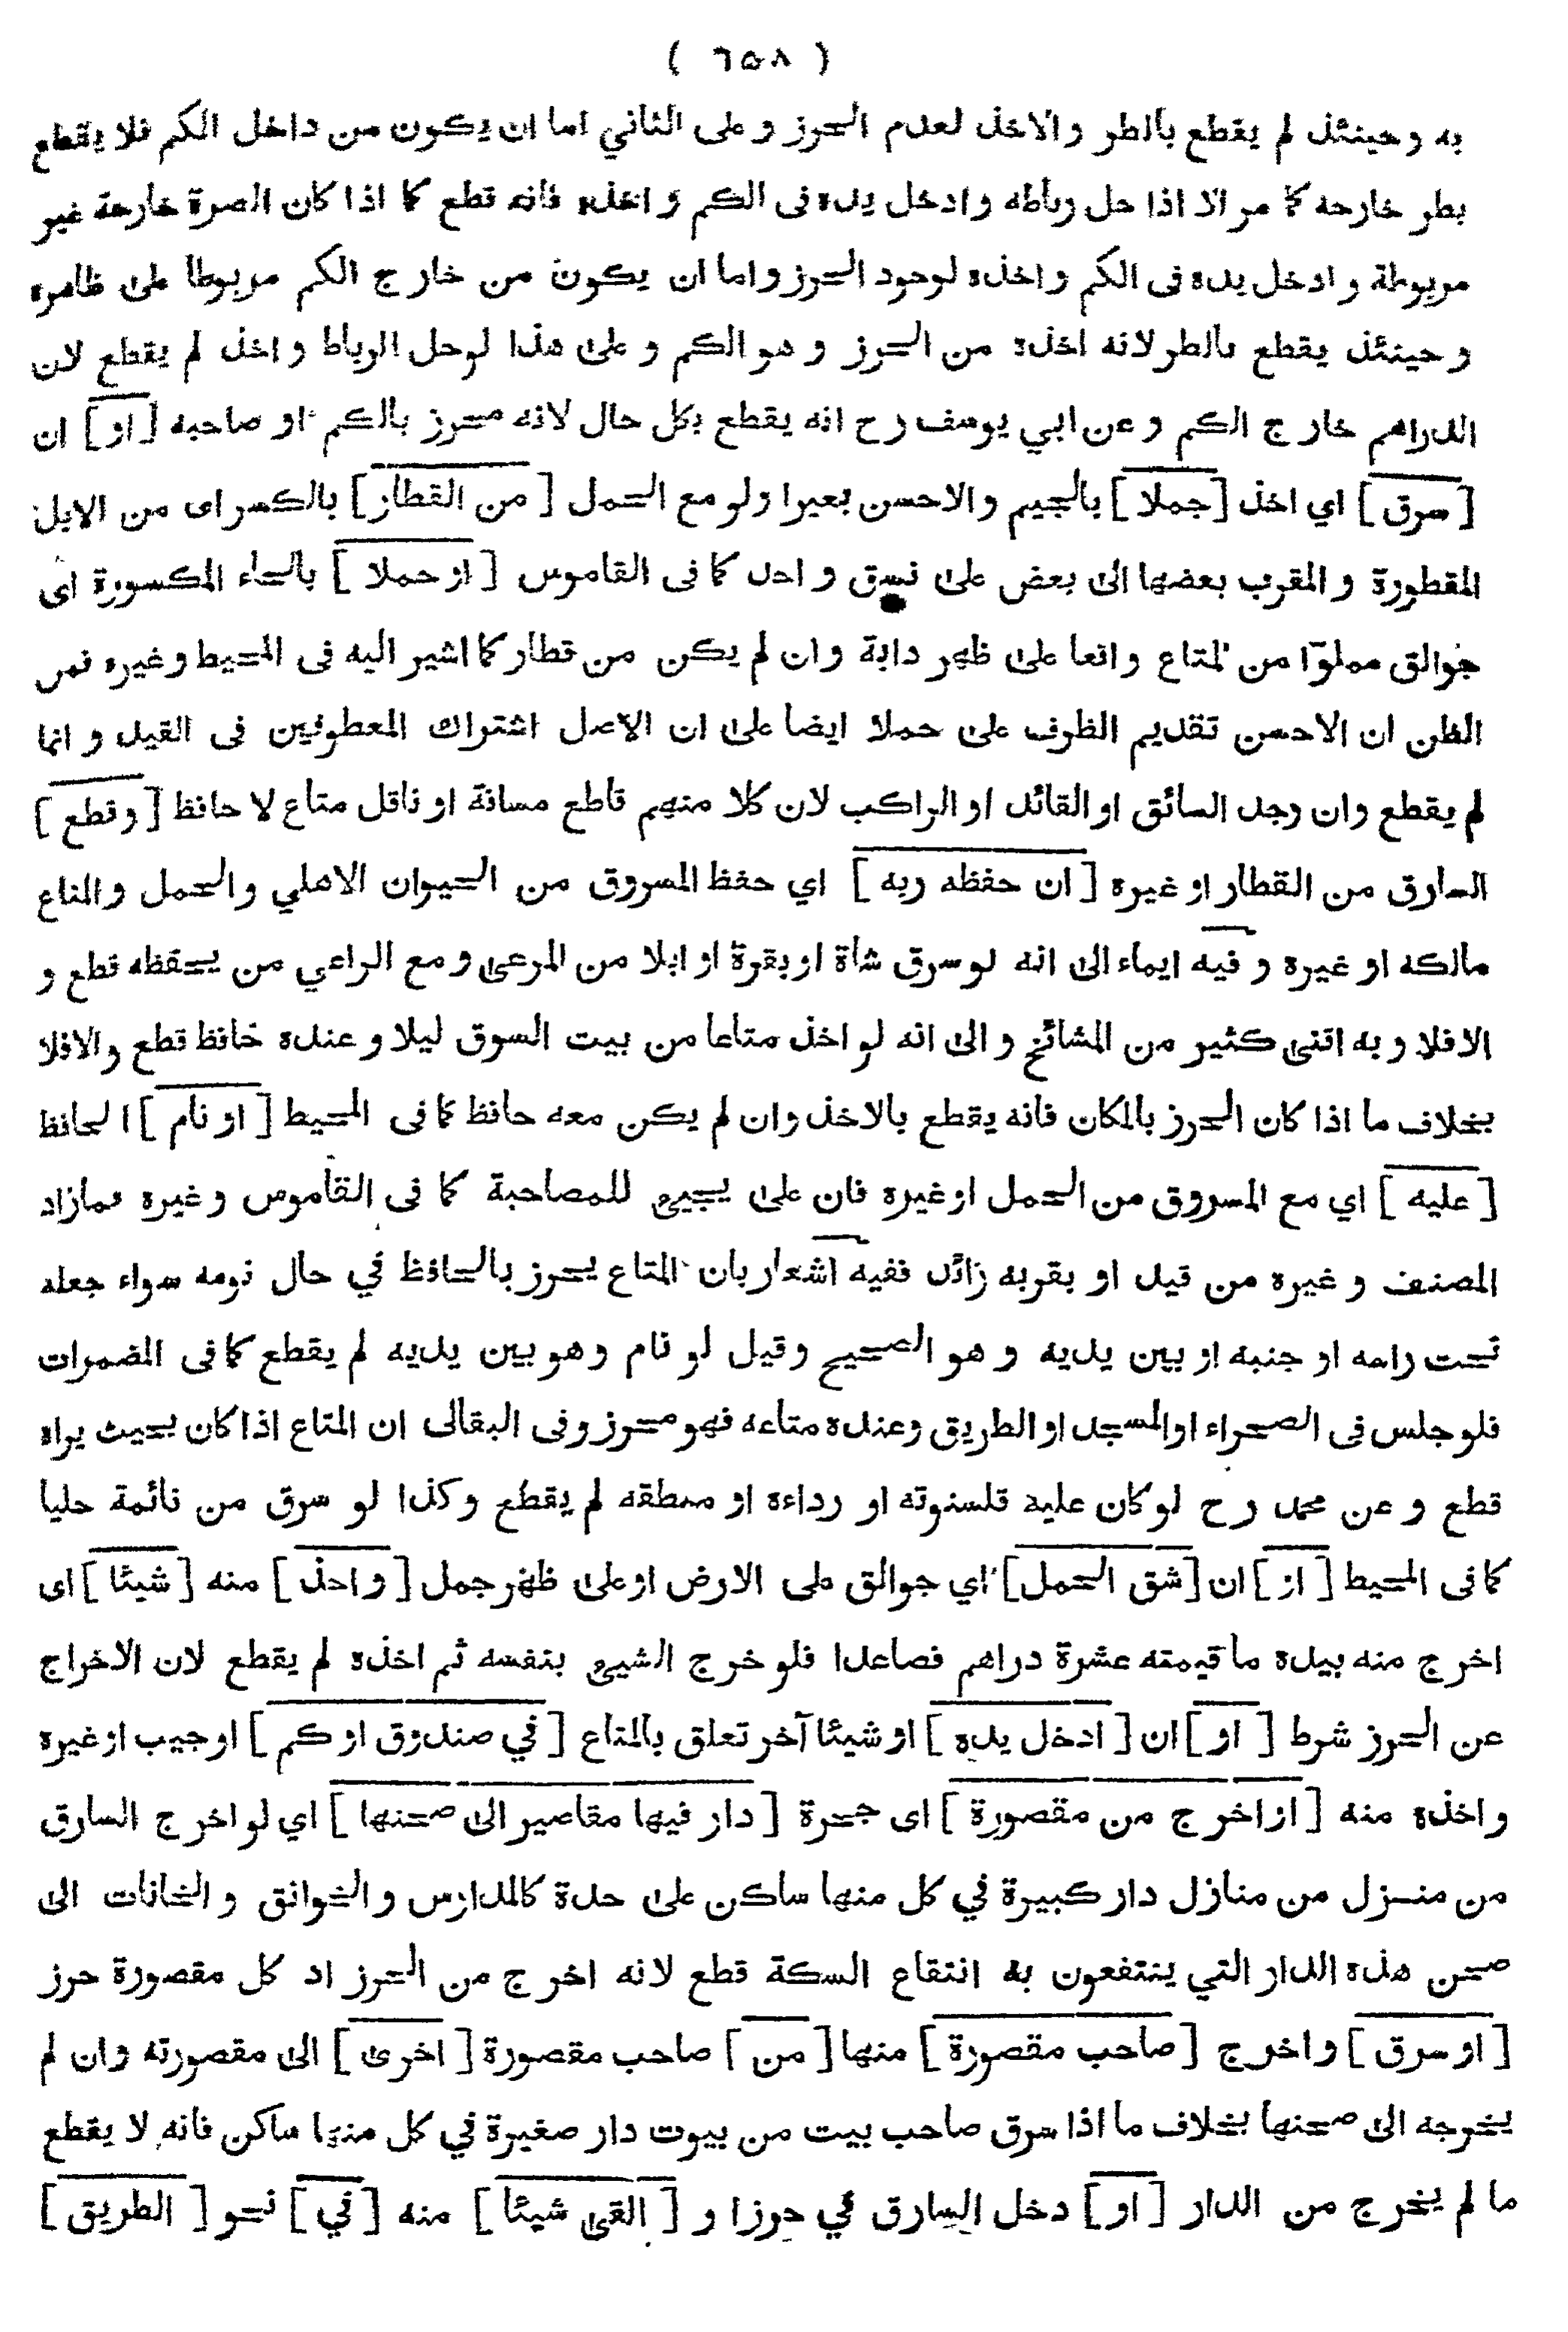 ( ٦٥٨ )
به و حينئذ لم يقطع بالطر والاخذ لعدم الحرز و على الثاني اما ان يكون من داخل الكم فلا يقطع
بطر خارجه كما مر الا اذا حل رباطه وادخل يده فى الكم و اخذه فانه قطع كما اذا كان الصرة خارجة غير
مربوطة و ادخل يده فى الكم واخذه لوجود الحرز واما ان يكون من خارج الكم مربوطا على ظاهره
و حينئذ يقطع بالطر لانه اخذه من الحرز و هو الكم و على هذا لوحل الرباط و اخذ لم يقطع لان
الدراهم خارج الكم و عن ابي يوسف رح انه يقطع بكل حال لانه محرز بالكم او صاحبه [او] ان
[سرق] اي اخذ [جملا] بالجيم والاحسن بعيرا ولو مع الحمل [من القطار] بالكسر اى من الابل
المقطورة و المقرب بعضها الى بعض على نسق و احد كما فى القاموس [او حملا] بالحاء المكسورة اى
جوالق مملوّا من المتاع واقعا على ظهر دابة وان لم يكن من قطار كما اشير اليه فى المحيط وغيره فمن
الظن ان الاحسن تقديم الظرف على حملا ايضا على ان الاصل اشتراك المعطوفين فى القيد و انما
لم يقطع وان وجد السائق او القائد او الراكب لان كلا منهم قاطع مسافة او ناقل متاع لا حافظ [وقطع]
السارق من القطار او غيره [ان حفظه ربه] اي حفظ المسروق من الحيوان الاهلي والحمل والمتاع
مالكه او غيره و فيه ايماء الى انه لو سرق شاة او بقرة او ابلا من المرعى و مع الراعي من يحفظه قطع و
الا فلا و به افتى كثير من المشائخ و الى انه لو اخذ متاعا من بيت السوق ليلا و عنده حافظ قطع والافلا
بخلاف ما اذا كان الحرز بالمكان فانه يقطع بالاخذ وان لم يكن معه حافظ كما فى المحيط [او نام] الحافظ
[عليه] اي مع المسروق من الحمل او غيره فان على يجيئ للمصاحبة كما فى القاموس و غيره فمازاد
المصنف و غيره من قيد او بقربه زائد ففيه اشعار بان المتاع يحرز بالحافظ في حال نومه سواء جعله
تحت راسه او جنبه او بين يديه و هو الصحيح وقيل لو نام وهو بين يديه لم يقطع كما فى المضمرات
فلو جلس فى الصحراء اوالمسجد او الطريق وعنده متاعه فهو محرز وفى البقالى ان المتاع اذا كان بحيث يراه
قطع و عن محمد رح لو كان عليه قلنسوته او رداءه او منطقه لم يقطع وكذا لو سرق من نائمة حليا
كما فى المحيط [او] ان [شق الحمل] اي جوالق على الارض او على ظهر جمل [واخذ] منه [شيئا] اى
اخرج منه بيده ما قيمته عشرة دراهم فصاعدا فلو خرج الشيئ بنفسه ثم اخذه لم يقطع لان الاخراج
عن الحرز شرط [او] ان [ادخل يده] او شيئا آخر تعلق بالمتاع [في صندوق او كم] او جيب او غيره
واخذه منه [او اخرج من مقصورة] اى حجرة [دار فيها مقاصير الى صحنها] اي لو اخرج السارق
من منزل من منازل دار كبيرة في كل منها ساكن على حدة كالمدارس والخوانق و الخانات الى
صحن هذه الدار التي ينتفعون به انتفاع السكة قطع لانه اخرج من الحرز اذ كل مقصورة حرز
[او سرق] واخرج [صاحب مقصورة] منها [من] صاحب مقصورة [اخرى] الى مقصورته وان لم
يخرجه الى صحنها بخلاف ما اذا سرق صاحب بيت من بيوت دار صغيرة في كل منها ساكن فانه لا يقطع
ما لم يخرج من الدار [او] دخل السارق في حرزا و [القى شيئا] منه [في] نحو [الطريق]